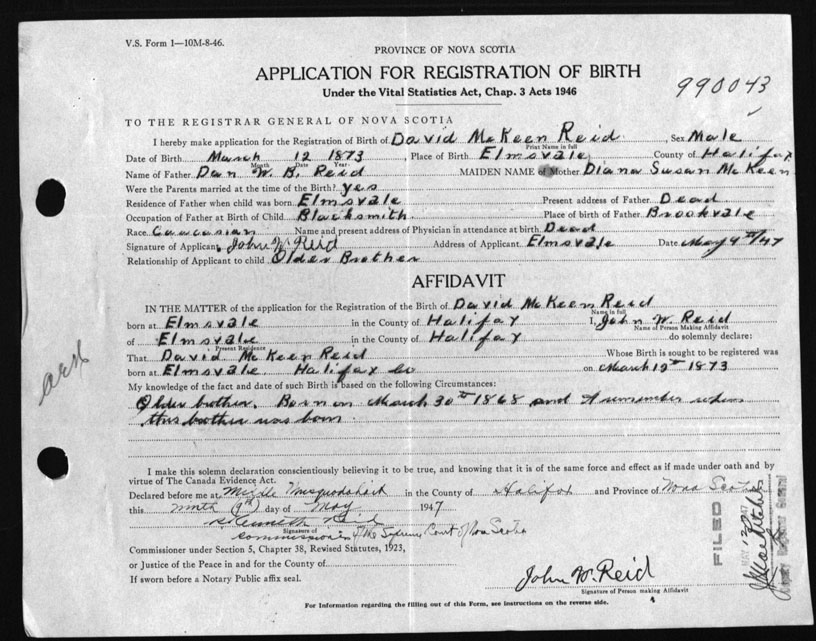 V.S. Form 1—10M-8-46.
PROVINCE OF NOVA SCOTIA
APPLICATION FOR REGISTRATION OF BIRTH
Under the Vital Statistics Act, Chap. 3 Acts 1946
990043
TO THE REGISTRAR GENERAL OF NOVA SCOTIA
I hereby make application for the Registration of Birth of David McKeen Reid, Sex Male
Print Name in full
Date of Birth March 12 1873, Place of Birth Elmsvale County of Halifax
Month Date Year
Name of Father Dan W. B. Reid MAIDEN NAME of Mother Diana Susan McKeen
Were the Parents married at the time of the Birth? yes
Residence of Father when child was born Elmsvale Present address of Father Dead
Occupation of Father at Birth of Child Blacksmith. Place of birth of Father Brookvale
Race Caucasian Name and present address of Physician in attendance at birth Dead
Signature of Applicant John W Reid Address of Applicant Elmsvale Date May 9th/47
Relationship of Applicant to child Older Brother
AFFIDAVIT
IN THE MATTER of the application for the Registration of the Birth of David McKeen Reid
Name in full
born at Elmsvale in the County of Halifax I, John W. Reid
Name of Person Making Affidavit
of Elmsvale in the County of Halifax do solemnly declare:
Present Residence
That David McKeen Reid Whose Birth is sought to be registered was
born at Elmsvale Halifax Co on March 12th 1873
My knowledge of the fact and date of such Birth is based on the following Circumstances:
Older brother. Born on March 30th 1868 and I remember when
this brother was born
I make this solemn declaration conscientiously believing it to be true, and knowing that it is of the same force and effect as if made under oath and by
virtue of The Canada Evidence Act.
Declared before me at Middle Musquodoboit in the County of Halifax and Province of Nova Scotia
this ninth (9th) day of May 1947
Kenneth Reid
Signature of
Commissioner of the Supreme Court of Nova Scotia
Commissioner under Section 5, Chapter 38, Revised Statutes, 1923,
or Justice of the Peace in and for the County of
If sworn before a Notary Public affix seal.
John W. Reid
Signature of Person making Affidavit
For Information regarding the filling out of this Form, see instructions on the reverse side.
FILED
MAY 12 1947